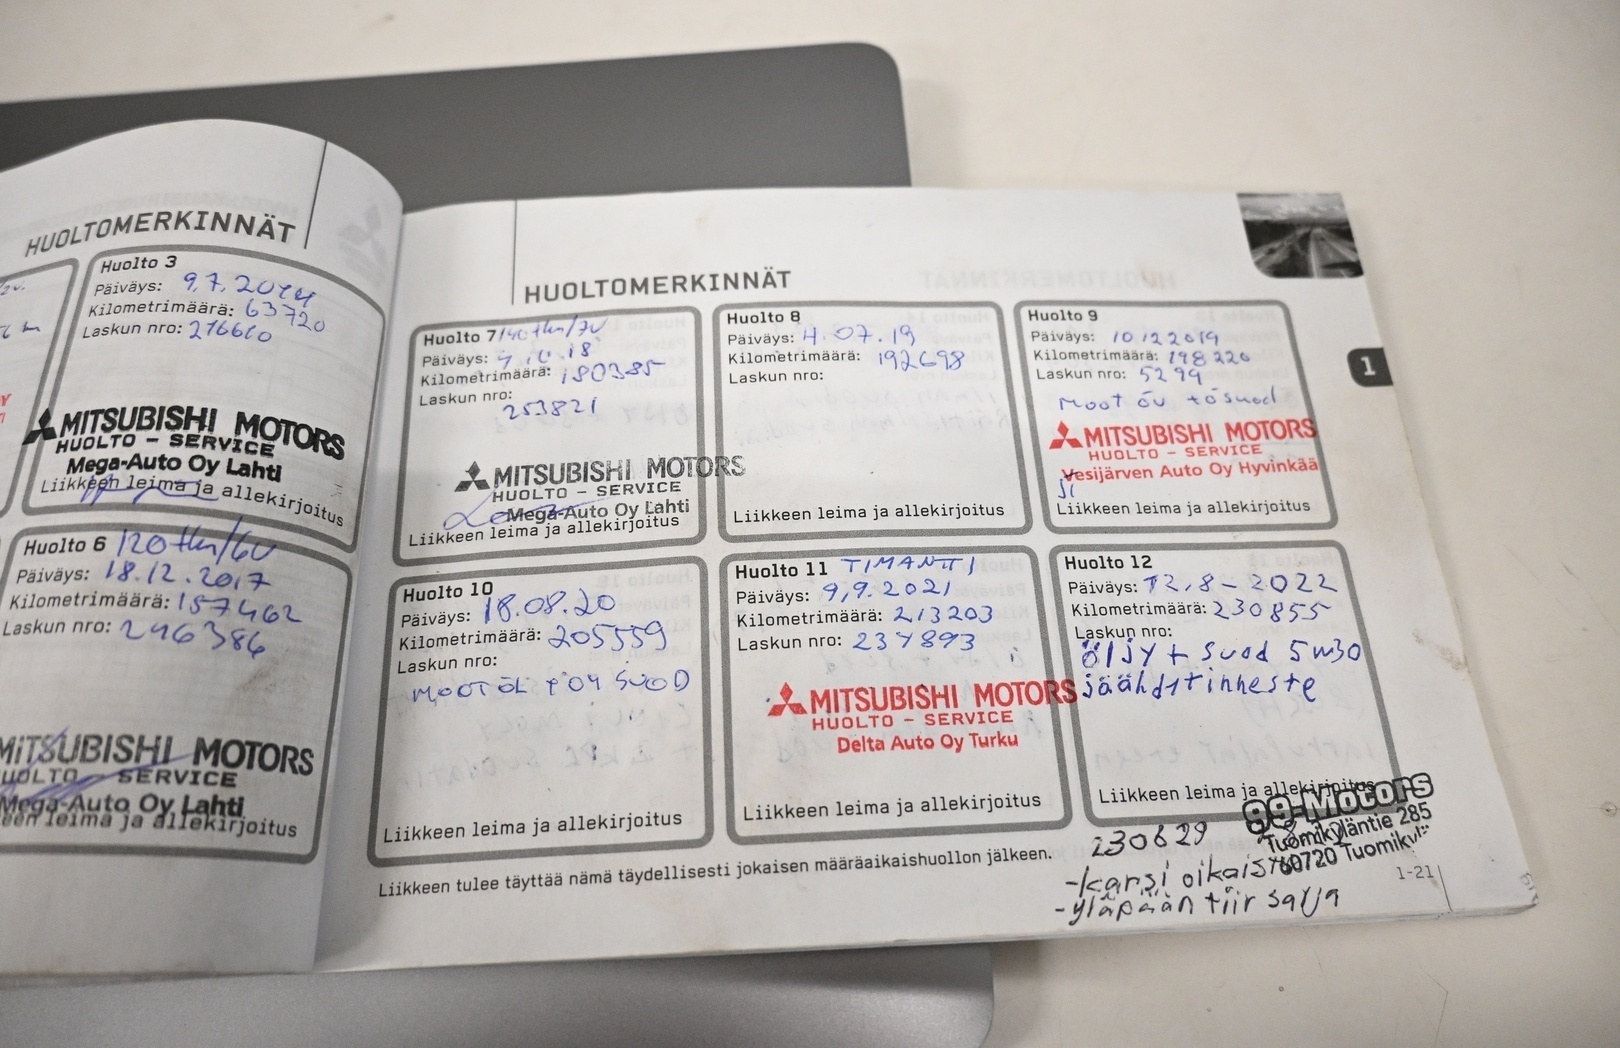 HUOLTOMERKINNÄT
Huolto 3
Päiväys: 9.7.2014
Kilometrimäärä: 63720
Laskun nro: 216610
MITSUBISHI MOTORS
HUOLTO - SERVICE
Mega-Auto Oy Lahti
Liikkeen leima ja allekirjoitus
Huolto 6 120tkm/6v
Päiväys: 18.12.2017
Kilometrimäärä: 157462
Laskun nro: 246386
MITSUBISHI MOTORS
HUOLTO - SERVICE
Mega-Auto Oy Lahti
een leima ja allekirjoitus
HUOLTOMERKINNÄT
Huolto 7 140tkm/7v
Päiväys: 9.10.18
Kilometrimäärä: 180385
Laskun nro:
253821
MITSUBISHI MOTORS
HUOLTO - SERVICE
Mega-Auto Oy Lahti
Liikkeen leima ja allekirjoitus
Huolto 8
Päiväys: 4.07.19
Kilometrimäärä: 192698
Laskun nro:
Liikkeen leima ja allekirjoitus
Huolto 9
Päiväys: 10 12 2019
Kilometrimäärä: 198220
Laskun nro: 5299
moot öv tösuod
MITSUBISHI MOTORS
HUOLTO - SERVICE
Vesijärven Auto Oy Hyvinkää
Liikkeen leima ja allekirjoitus
Huolto 10
Päiväys: 18.08.20
Kilometrimäärä: 205559
Laskun nro:
MOOTÖL + ÖY SUOD
Liikkeen leima ja allekirjoitus
Huolto 11 TIMANTTI
Päiväys: 9,9.2021
Kilometrimäärä: 213203
Laskun nro: 237893
MITSUBISHI MOTORS
HUOLTO - SERVICE
Delta Auto Oy Turku
Liikkeen leima ja allekirjoitus
Huolto 12
Päiväys: 12.8-2022
Kilometrimäärä: 230855
Laskun nro:
öljy + suod 5w30
jäähdytinneste
Liikkeen leima ja allekirjoitus
99-Motors
Tuomikyläntie 285
60720 Tuomikylä
230829
-karsi oikaisy
-yläpään tiir sarja
Liikkeen tulee täyttää nämä täydellisesti jokaisen määräaikaishuollon jälkeen.
1-21
1